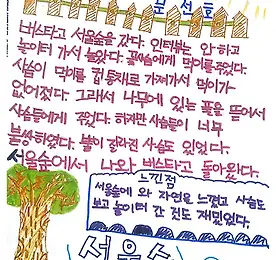 버스타고 서울숲을 갔다. 인터뷰는 안 하고
놀이터 가서 놀았다. 꽃사슴에게 먹이를주었다.
사슴이 먹이를 컵 통채로 가져가서 먹이가
없어졌다. 그래서 나무에 있는 풀을 뜯어서
사슴들에게 주었다. 하지만 사슴들이 너무
불쌍하였다. 뿔이 잘라진 사슴도 있었다.
서울숲에서 나와 버스타고 돌아왔다.
느낀점
서울숲에 와 자연을 느꼈고 사슴도
보고 놀이터 간 것도 재밌었다.
서울숲